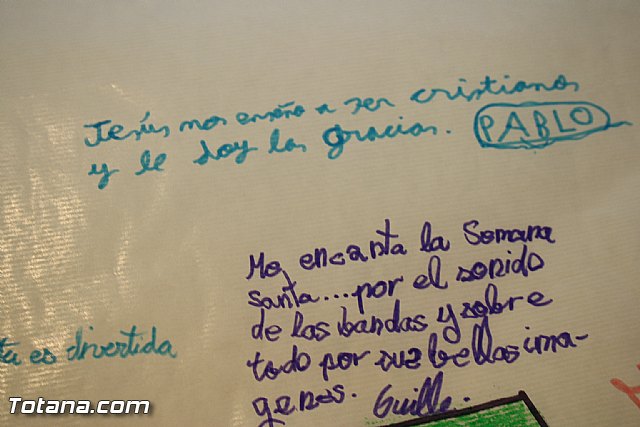 Jesús nos enseña a ser cristianos
y le doy las gracias. PABLO
Me encanta la Semana
santa...por el sonido
de las bandas y sobre
todo por sus bellas ima-
genes. Guille.
ta es divertida
Totana.com